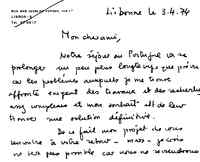 Lisbonne le 3.4.74
Mon cher ami,
Notre séjour au Portugal va se
prolonger un peu plus longtemps que prévu
car les problèmes auxquels je me trouve
affronté exigent des travaux et des recherches
complexes et mon souhait est de leur
trouver une solution définitive.
De ce fait mon projet de vous
à votre retour - mars - je crois
ne sera pas possible car nous ne reviendrons